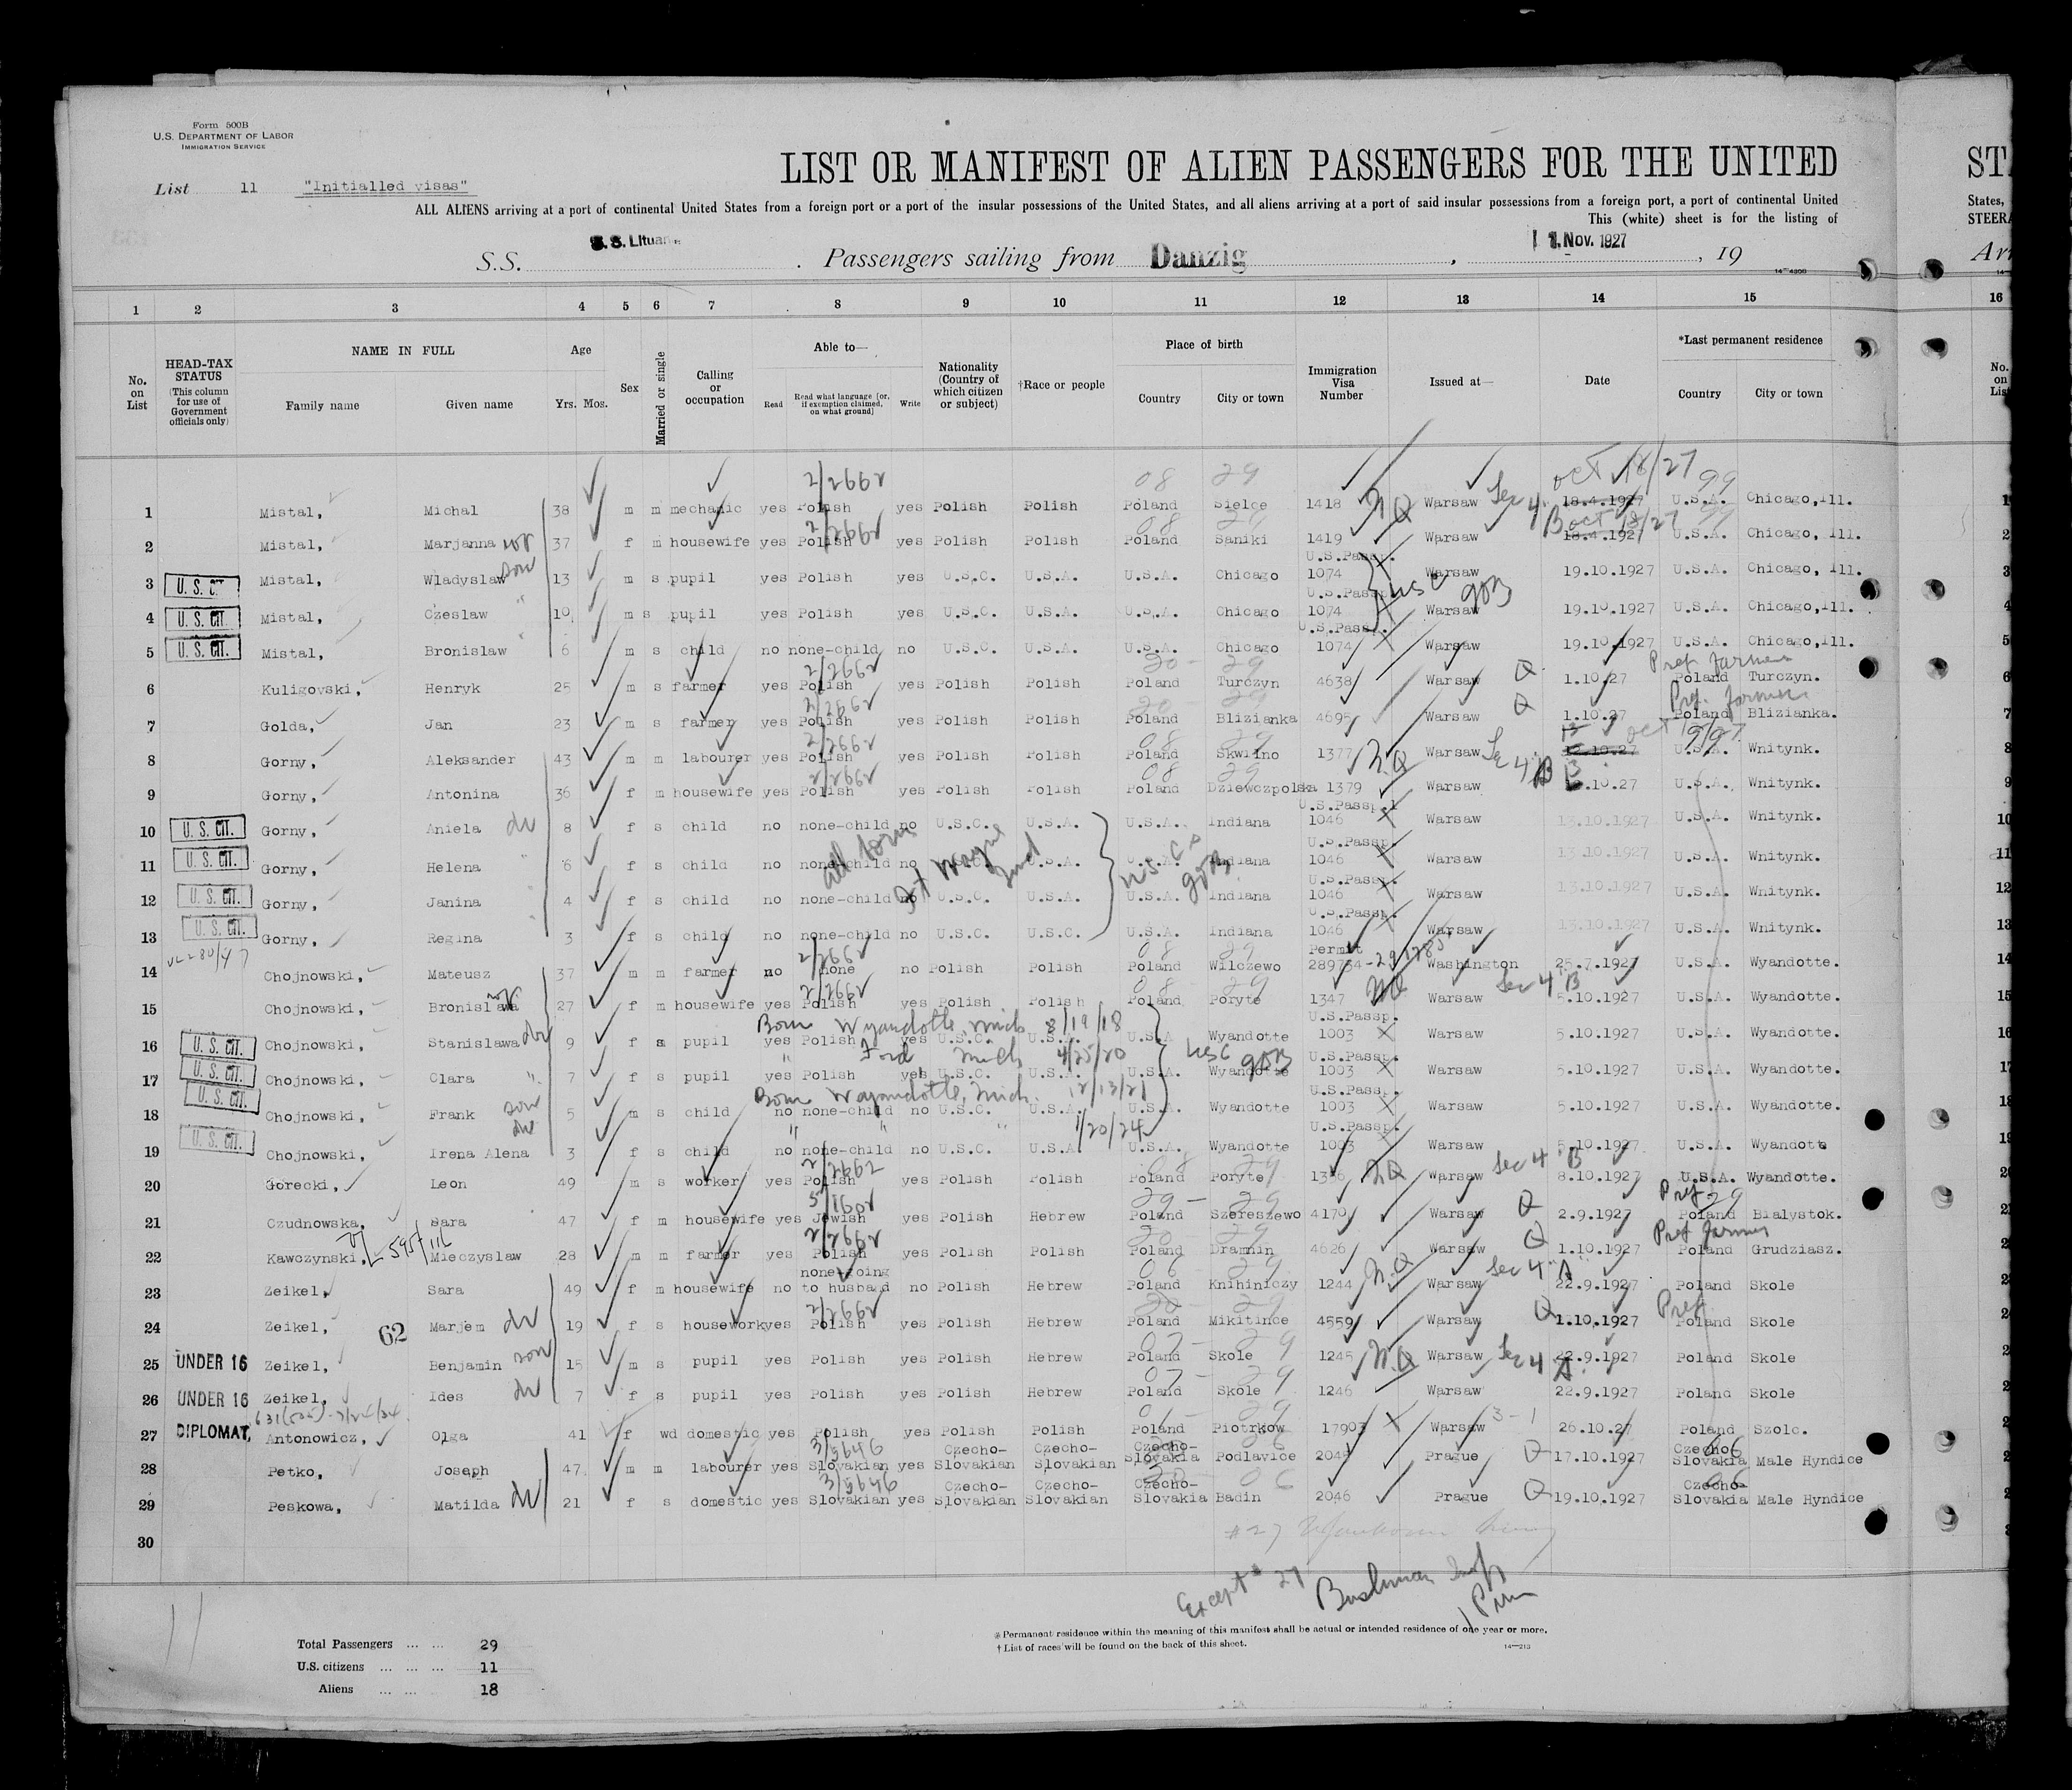 Form 500B
U.S. DEPARTMENT OF LABOR
IMMIGRATION SERVICE
LIST OR MANIFEST OF ALIEN PASSENGERS FOR THE UNITED
List 11 "Initialled visas"
ALL ALIENS arriving at a port of continental United States from a foreign port or a port of the insular possessions of the United States, and all aliens arriving at a port of said insular possessions from a foreign port, a port of continental United
This (white) sheet is for the listing of
S.S. S.S. Lituan Passengers sailing from Danzig, 1 1. Nov. 1927, 19
1 2 3 4 5 6 7 8 9 10 11 12 13 14 15 16
No. on List
HEAD-TAX STATUS (This column for use of Government officials only)
NAME IN FULL Family name Given name
Age Yrs. Mos.
Sex
Married or single
Calling or occupation
Able to— Read Read what language [or, if exemption claimed, on what ground] Write
Nationality (Country of which citizen or subject)
†Race or people
Place of birth Country City or town
Immigration Visa Number
Issued at—
Date
*Last permanent residence Country City or town
1 Mistal, Michal 38 m m mechanic yes Polish yes Polish Polish Poland Sielce 1418 NQ Warsaw Sec 4 B 18.4.1927 Oct 18/27 U.S.A. Chicago, Ill.
2 Mistal, Marjanna 37 f m housewife yes Polish yes Polish Polish Poland Saniki 1419 Warsaw 18.4.1927 Oct 18/27 U.S.A. Chicago, Ill.
3 U.S. CIT. Mistal, Wladyslaw son 13 m s pupil yes Polish yes U.S.C. U.S.A. U.S.A. Chicago U.S.Passp. 1074 Warsaw 19.10.1927 U.S.A. Chicago, Ill.
4 U.S. CIT. Mistal, Czeslaw " 10 m s pupil yes Polish yes U.S.C. U.S.A. U.S.A. Chicago U.S.Passp. 1074 Warsaw 19.10.1927 U.S.A. Chicago, Ill.
5 U.S. CIT. Mistal, Bronislaw " 6 m s child no none-child no U.S.C. U.S.A. U.S.A. Chicago U.S.Passp. 1074 Warsaw 19.10.1927 U.S.A. Chicago, Ill.
6 Kuligovski, Henryk 25 m s farmer yes Polish yes Polish Polish Poland Turczyn 4638 Warsaw Q 1.10.27 Pref farmer Poland Turczyn.
7 Golda, Jan 23 m s farmer yes Polish yes Polish Polish Poland Blizianka 4695 Warsaw Q 1.10.27 Pref. farmer Poland Blizianka.
8 Gorny, Aleksander 43 m m labourer yes Polish yes Polish Polish Poland Skwilno 1377 NQ Warsaw Sec 4 B U.S.A. Wnitynk.
9 Gorny, Antonina 36 f m housewife yes Polish yes Polish Polish Poland Dziewczpolska 1379 Warsaw U.S.A. Wnitynk.
10 U.S. CIT. Gorny, Aniela 8 f s child no none-child no U.S.C. U.S.A. U.S.A. Indiana U.S.Passp. 1046 Warsaw 13.10.1927 U.S.A. Wnitynk.
11 U.S. CIT. Gorny, Helena 6 f s child no none-child no U.S.A. U.S.A. Indiana U.S.Passp. 1046 Warsaw 13.10.1927 U.S.A. Wnitynk.
12 U.S. CIT. Gorny, Janina 4 f s child no none-child no U.S.C. U.S.A. U.S.A. Indiana U.S.Passp. 1046 Warsaw 13.10.1927 U.S.A. Wnitynk.
13 U.S. CIT. Gorny, Regina 3 f s child no none-child no U.S.C. U.S.C. U.S.A. Indiana U.S.Passp. 1046 Warsaw 13.10.1927 U.S.A. Wnitynk.
all born Ft Wayne Ind
14 Chojnowski, Mateusz 37 m m farmer no none no Polish Polish Poland Wilczewo Permit 289734 Washington 25.7.1927 U.S.A. Wyandotte.
15 Chojnowski, Bronislawa 27 f m housewife yes Polish yes Polish Polish Poland Poryte 1347 NQ Warsaw Sec 4 B 5.10.1927 U.S.A. Wyandotte.
Born Wyandotte, Mich 8/19/18
16 U.S. CIT. Chojnowski, Stanislawa 9 f s pupil yes Polish yes U.S.C. U.S.A. U.S.A Wyandotte U.S.Passp. 1003 Warsaw 5.10.1927 U.S.A. Wyandotte.
" Ford Mich 4/25/20
17 U.S. CIT. Chojnowski, Clara " 7 f s pupil yes Polish yes U.S.C. U.S.A. U.S.A. Wyandotte U.S.Passp. 1003 Warsaw 5.10.1927 U.S.A. Wyandotte.
Born Wayandotte, Mich. 12/13/21
18 U.S. CIT. Chojnowski, Frank son 5 m s child no none-child no U.S.C. U.S.A. U.S.A. Wyandotte U.S.Passp. 1003 Warsaw 5.10.1927 U.S.A. Wyandotte.
" " " 1/20/24
19 U.S. CIT. Chojnowski, Irena Alena 3 f s child no none-child no U.S.C. U.S.A U.S.A. Wyandotte U.S.Passp. 1003 Warsaw 5.10.1927 U.S.A. Wyandotte
20 Gorecki, Leon 49 m s worker yes Polish yes Polish Polish Poland Poryte NQ Warsaw Sec 4 B 8.10.1927 U.S.A. Wyandotte.
21 Czudnowska, Sara 47 f m housewife yes Jewish yes Polish Hebrew Poland Szereszewo 4170 Warsaw Q 2.9.1927 Pref Poland Bialystok.
22 Kawczynski, Mieczyslaw 28 m m farmer yes Polish yes Polish Polish Poland Dramnin 4626 Warsaw Q 1.10.1927 Pref farmer Poland Grudziasz.
23 Zeikel, Sara 49 f m housewife no none-going to husband no Polish Hebrew Poland Knihiniczy 1244 NQ Warsaw Sec 4 "A" 22.9.1927 Poland Skole
24 Zeikel, 62 Marjem 19 f s housework yes Polish yes Polish Hebrew Poland Mikitince 4559 Warsaw Q 1.10.1927 Pref Poland Skole
25 UNDER 16 Zeikel, Benjamin son 15 m s pupil yes Polish yes Polish Hebrew Poland Skole 1245 NQ Warsaw Sec 4 A 22.9.1927 Poland Skole
26 UNDER 16 Zeikel, Ides 7 f s pupil yes Polish yes Polish Hebrew Poland Skole 1246 Warsaw 22.9.1927 Poland Skole
27 DIPLOMAT, Antonowicz, Olga 41 f wd domestic yes Polish yes Polish Polish Poland Piotrkow 17903 Warsaw 3-1 26.10.27 Poland Szolc.
28 Petko, Joseph 47 m m labourer yes Slovakian yes Czecho-Slovakian Czecho-Slovakian Czecho-Slovakia Podlavice 2045 Prague Q 17.10.1927 Czecho-Slovakia Male Hyndice
29 Peskowa, Matilda 21 f s domestic yes Slovakian yes Czecho-Slovakian Czecho-Slovakian Czecho-Slovakia Badin 2046 Prague Q 19.10.1927 Czecho-Slovakia Male Hyndice
30
Except # 27
*Permanent residence within the meaning of this manifest shall be actual or intended residence of one year or more.
†List of races will be found on the back of this sheet.
14—213
11
Total Passengers ... ... 29
U.S. citizens ... ... ... 11
Aliens ... ... 18